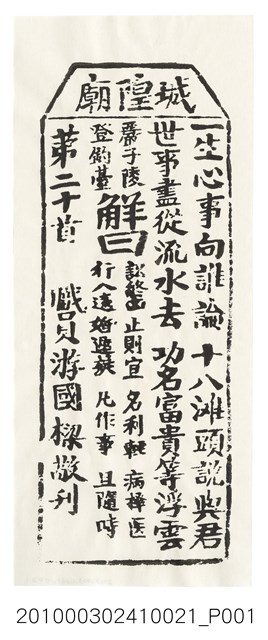 城隍廟
一生心事向誰論 十八灘頭說與君
世事盡從流水去 功名富貴等浮雲
嚴子陵
登釣臺
解曰
訟終凶 止則宜 名利輕 病擇医
行人遠 婚遲疑 凡作事 且隨時
第二十首 貢游國樑敬刊
201000302410021_P001